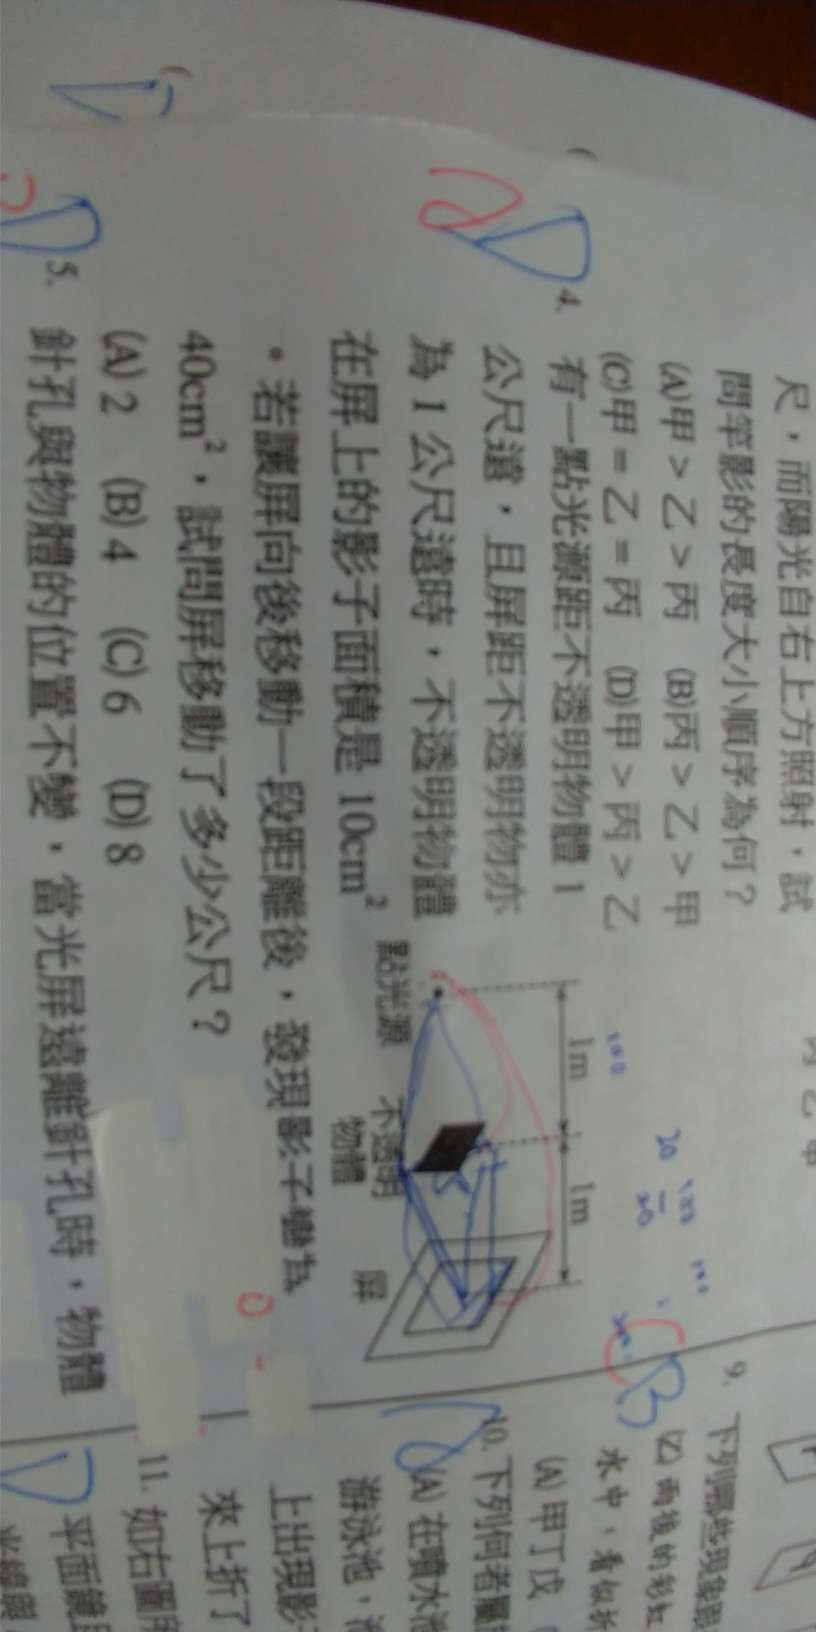 尺，而陽光自右上方照射，試
問竿影的長度大小順序為何？
(A)甲＞乙＞丙 (B)丙＞乙＞甲
(C)甲＝乙＝丙 (D)甲＞丙＞乙
4. 有一點光源距不透明物體 1
公尺遠，且屏距不透明物亦
為 1 公尺遠時，不透明物體
在屏上的影子面積是 10cm²
。若讓屏向後移動一段距離後，發現影子變為
40cm²，試問屏移動了多少公尺？
(A) 2 (B) 4 (C) 6 (D) 8
5. 針孔與物體的位置不變，當光屏遠離針孔時，物體
1m
1m
點光源
不透明
物體
屏
100
20
B
9. 下列哪些現象
(乙)雨後的彩虹
水中，看似折
(A) 甲丁戊
10. 下列何者屬
(A) 在噴水池
游泳池，
上出現影
來上折了
11. 如右圖所
平面鏡
光線與